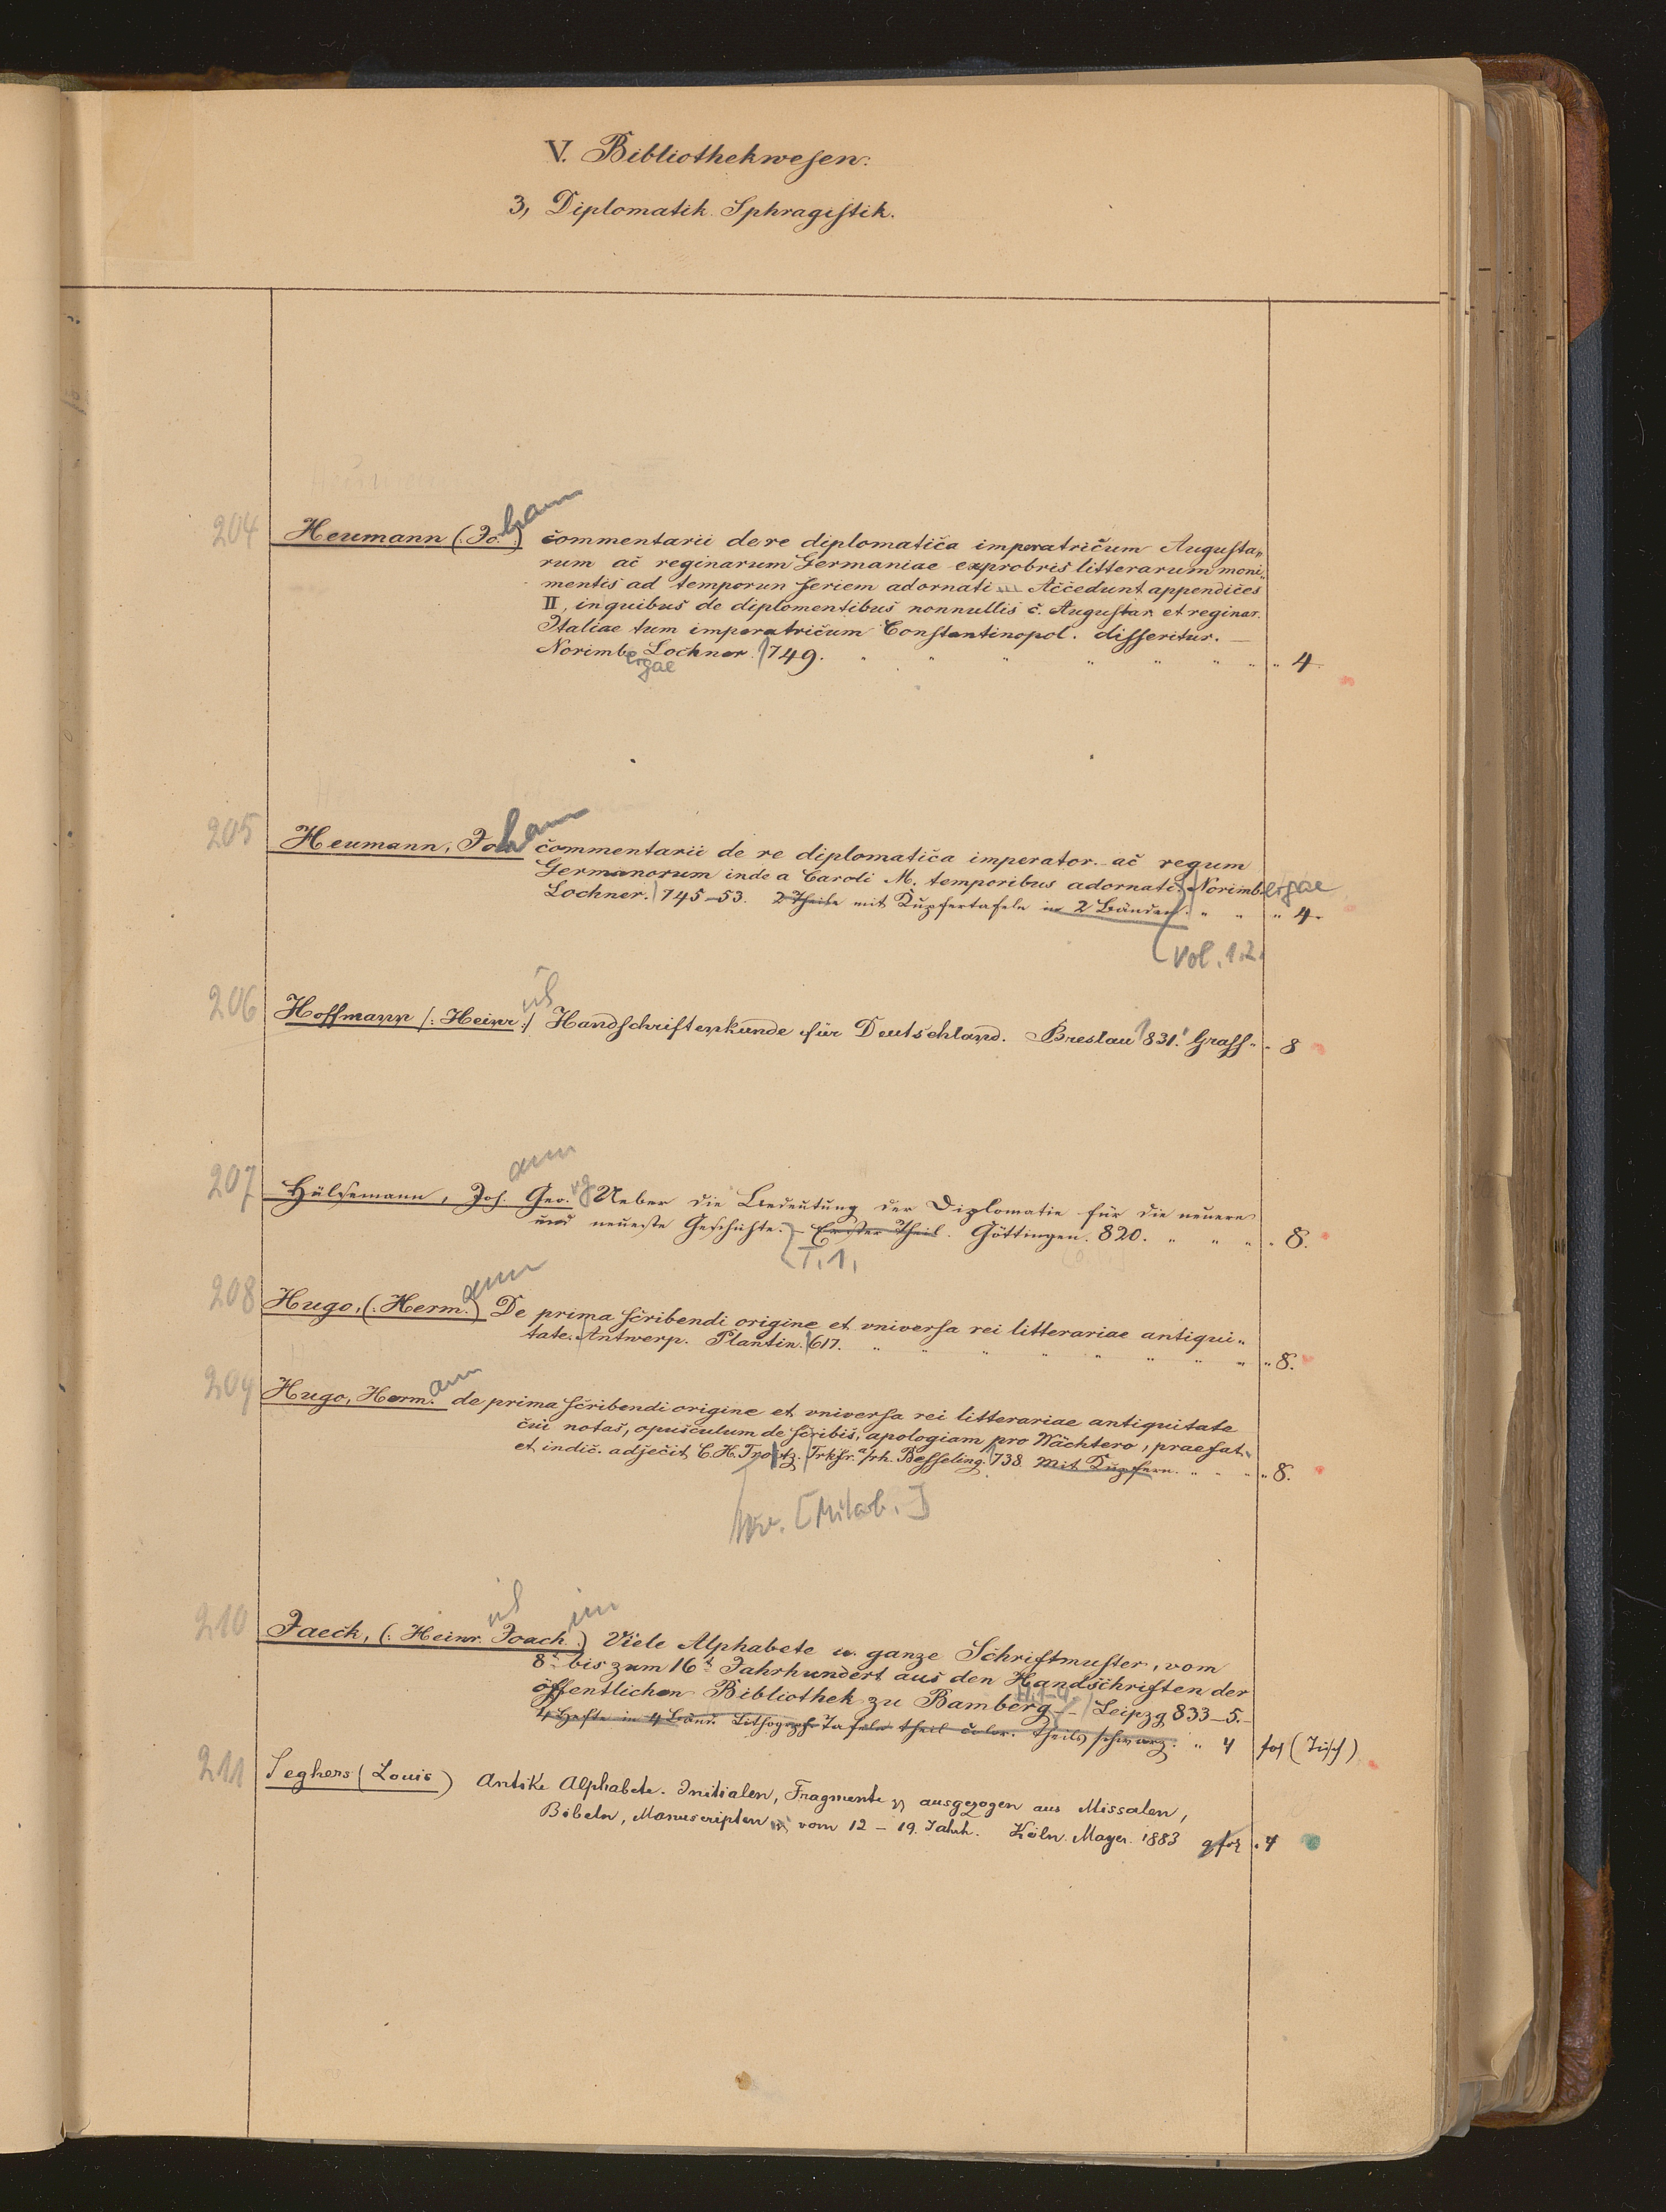 V. Bibliothekwesen.
3, Diplomatik. Sphragistik.
204 Heumann (: Jo. :) hann commentarii de re diplomatica imperatricum Augusta„
rum ac reginarum Germaniae exprobris litterarum moni„
mentis ad temporun seriem adornati Accedunt appendices
II, in quibus de diplomentibus nonnullis c. Augustar. et reginar.
Italiae tum imperatricum Constantinopol. disseritur. —
Norimb. ergae Lochner. 1749. " " " " " " " 4.
205 Heumann, Joh hann commentarii de re diplomatica imperator. ac regum
Germanorum inde a Caroli M. temporibus adornati. Norimb. ergae
Lochner. 1745–53. 2 Theile mit Kupfertafeln in 2 Bänden. " " " 4.
Vol. 1.2.
206 Hoffmann (: Heinr :) ich Handschriftenkunde für Deutschland. Breslau 831. Grass " " 8
207 Hülsemann, Joh. ann Geo. rg Ueber die Bedeutung der Diplomatie für die neuere
und neueste Geschichte. – Erster Theil. Göttingen. 820. " " " " 8.
T. 1.
208 Hugo, (: Herm. :) ann De prima scribendi origine et vniversa rei litterariae antiqui„
tate. Antwerp. Plantin. 1617. " " " " " " " " 8.
209 Hugo, Herm. ann de prima scribendi origine et vniversa rei litterariae antiquitate
cui notas, opusculum de scribis, apologiam pro Wächtero, praefat.
et indic. adjecit C. H. Trotz. Frkfr. a/rh. Besseling. 1738. Mit Kupfern. " " " " 8.
[Mitarb.]
210 Jaeck, (: Heinr. ich Joach. im :) Viele Alphabete u. ganze Schriftmuster, vom
8t. bis zum 16t. Jahrhundert aus den Handschriften der
öffentlichen Bibliothek zu Bamberg. H. 1–4. – Leipzg 833–5. –
4 Hefte in 4 Bänd. Lithograph. Tafeln theil color. theils schwarz. " 4 fol (Tisch)
211 Seghers (Louis) Antike Alphabete. Initialen, Fragmente ausgezogen aus Missalen,
Bibeln, Manuscripten vom 12 – 19. Jahrh. Köln. Mayer. 1883 qfol . 4